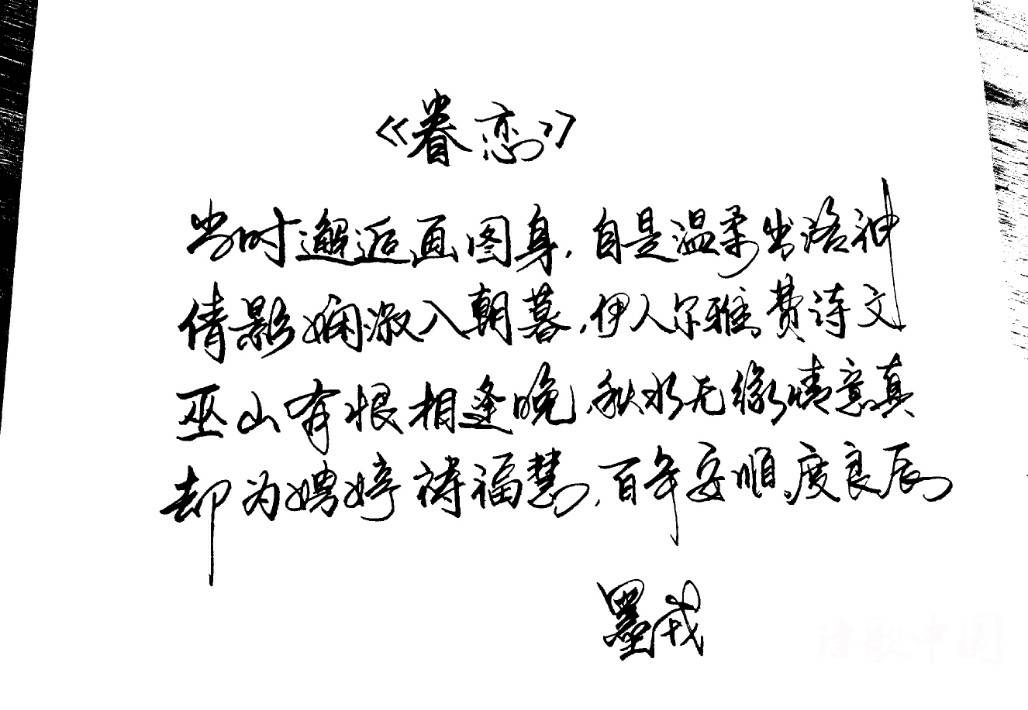 《眷恋》
当时邂逅画图身，自是温柔出洛神
倩影娴淑入朝暮，伊人尔雅费诗文
巫山有恨相逢晚，秋水无缘情意真
却为娉婷祷福慧，百年安顺度良辰
墨戎
诗歌中国